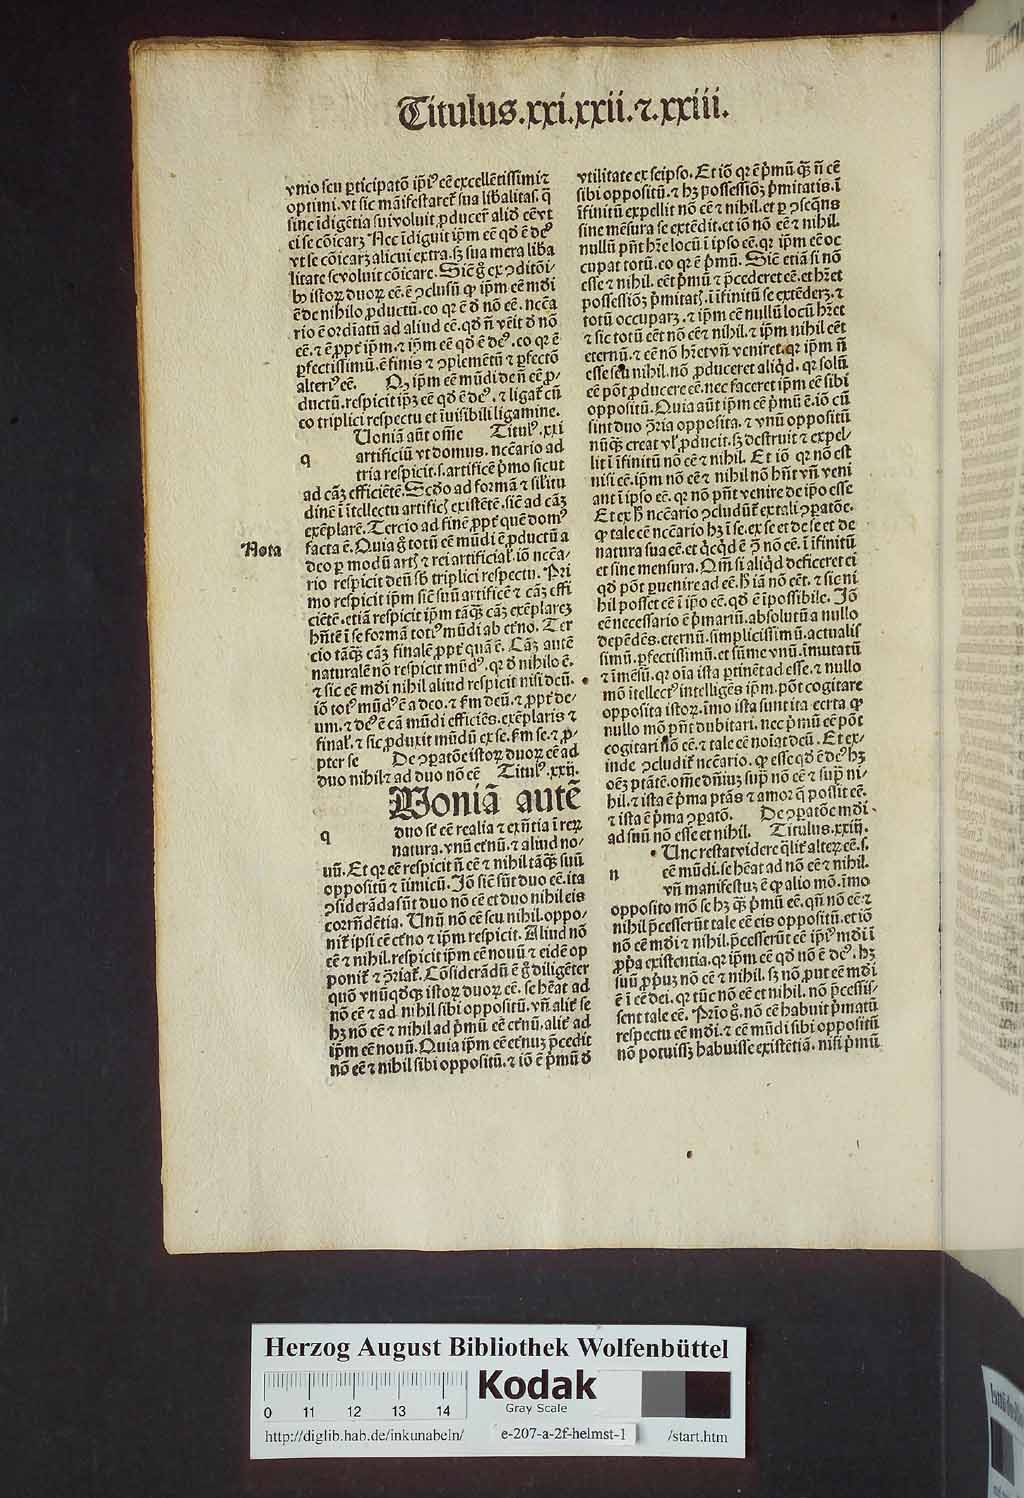 Titulus.xxi.xxii.⁊.xxiii.
vnio seu ꝑticipatō ip̄iꝰ eē excellētissimi ⁊
optimi. vt sic māifestaret᷑ sua liƀalitas. q̄
sine īdigētia sui voluit ꝓducer̄ aliđ eē vt
ei se cōicarꝫ Nec īdiguit ip̄m eē qđ ē deꝰ
vt se cōicarꝫ alicui extra. sꝫ sua mera liƀa
litate se voluit cōicare. Siē g̊ ex ꝯditōi-
bꝰ istoꝝ duoꝝ eē. ē ꝯclusū ꝙ ip̄m eē mūdi
ē de nihilo ꝓductū. eo qꝛ ē đ nō eē. necēa
rio ē ordiatū ad aliud eē. qđ n̄ vēit đ nō
eē. ⁊ ē ꝓpt̄ ip̄m. ⁊ ip̄m eē qđ ē deꝰ. eo qꝛ ē
ꝑfectissimū. ē finis ⁊ ꝯplemētū ⁊ ꝑfectō
alteriꝰ eē. Qꝫ ip̄m eē mūdi de n̄ eē ꝓ-
ductū. respicit ip̄ꝫ eē qđ ē deꝰ. ⁊ ligat᷑ cū
eo triplici respectu et īuisibili ligamine.
Uoniā aūt om̄e Titulꝰ. xxi
q
artificiū vt domus. necēario ad
tria respicit. s. artificē p̄mo sicut
ad cāꝫ efficiētē. Scđo ad formā ⁊ sił'itu
dinē ī ītellectu artificꝭ existētē. siē ad cāꝫ
exēplarē. Tercio ad finē ꝓpt̄ quē domꝰ
facta ē. Quia g̊ totū eē mūdi ē ꝓductū a
Nota
deo ꝑ modū artꝭ ⁊ rei artificial̕. iō necēa-
rio respicit deū sƀ triplici respectu. Pri
mo respicit ip̄m siē suū artificē ⁊ cāꝫ effi
ciētē. etiā respicit ip̄m tāq̄ꝫ cāꝫ exēplareꝫ
hn̄tē ī se formā totiꝰ mūdi ab et̄no. Ter
cio tāq̄ꝫ cāꝫ finalē ꝓpt̄ quā ē. Cāꝫ autē
naturalē nō respicit mūdꝰ. qꝛ đ nihilo ē.
⁊ sic eē mūdi nihil aliud respicit nisi deū.
iō totꝰ mūdꝰ ē a deo. ⁊ fm̄ deū. ⁊ ꝓpt̄ de-
um. ⁊ deꝰ ē cā mūdi efficiēs. exēplaris ⁊
final̕. ⁊ sic ꝓduxit mūdū ex se. fm̄ se. ⁊ ꝓ-
pter se De ꝯꝑatōe istoꝝ duoꝝ eē ad
duo nihil ⁊ ad duo nō eē Titulꝰ. xxij.
Uoniā autē
q
duo st̄ eē realia ⁊ exn̄tia ī reꝝ
natura. vnū et̄nū. ⁊ aliud no-
uū. Et qꝛ eē respicit n̄ eē ⁊ nihil tāq̄ꝫ suū
oppositū ⁊ īimicū. Iō siē sūt duo eē. ita
ꝯsiderāda sūt duo nō eē et duo nihil eis
corrn̄dētia. Unū nō eē seu nihil. oppo-
nit᷑ ipsi eē et̄no ⁊ ip̄m respicit. Aliud nō
eē ⁊ nihil. respicit ip̄m eē nouū ⁊ eidē op
ponit᷑ ⁊ ꝯ̄riat᷑. Cōsiderādū ē g̊ diligēter
quō vnūqđqꝫ istoꝝ duoꝝ eē. se hēat ad
nō eē ⁊ ad nihil sibi oppositū. vn̄ alit̄ se
hꝫ nō eē ⁊ nihil ad p̄mū eē et̄nū. alit̄ ad
ip̄m eē nouū. Quia ip̄m eē et̄nuꝫ p̄cedit
nō eē ⁊ nihil sibi oppositū. ⁊ iō ē p̄mū đ
vtilitate ex seipso. Et iō qꝛ ē p̄mū q̄ꝫ n̄ eē
sibi oppositū. ⁊ hꝫ possessiōꝫ p̄mitatis. ī
īfinitū expellit nō eē ⁊ nihil. et ꝑ ꝯseq̄ns
sine mēsura se extēdit. et iō nō eē ⁊ nihil.
nullū pn̄t hr̄e locū ī ipso eē. qꝛ ip̄m eē oc
cupat totū. eo qꝛ ē p̄mū. Siē etiā si nō
esse ⁊ nihil. eēt p̄mū ⁊ p̄cederet eē. et hr̄et
possessiōꝫ p̄mitatꝭ. ī īfinitū se extēderꝫ. ⁊
totū occuparꝫ. ⁊ ip̄m eē nullū locū hr̄et
⁊ sic totū eēt nō eē ⁊ nihil. ⁊ ip̄m nihil eēt
eternū. ⁊ eē nō hr̄et vn̄ veniret. qꝛ ip̄m n̄
esse seu nihil. nō ꝓduceret aliq̇d. qꝛ solū
eē pōt ꝓducere eē. nec faceret ip̄m eē sibi
oppositū. Quia aūt ip̄m eē p̄mū ē. iō cū
sint duo ꝯ̄ria opposita. ⁊ vnū oppositū
nūq̄ꝫ creat vl̕ ꝓducit. sꝫ destruit ⁊ expel-
lit ī īfinitū nō eē ⁊ nihil. Et iō qꝛ nō est
nisi eē. ip̄m nō eē ⁊ nihil nō hn̄t vn̄ veni
ant ī ipso eē. qꝛ nō pn̄t venire de ip̄o esse
Et ex h̄ necēario ꝯcludūt᷑ ex tali ꝯꝑatōe.
ꝙ tale eē necēario hꝫ ī se. ex se et de se et de
natura sua eē. et q̇cq̇d ē ꝯ̄ nō eē. ī īfinitū
et sine mensura. Qm̄ si aliq̇d deficeret ei
qđ pōt ꝑuenire ad eē. h̄ iā nō eēt. ⁊ sic ni
hil posset eē ī ip̄o eē. qđ ē īpossibile. Iō
eē necessario ē p̄mariū. absolutū a nullo
depēdēs. eternū. simplicissimū. actualis
simū. ꝑfectissimū. et sūme vnū. īmutatū
⁊ īmēsū. qꝛ oīa ista ꝑtinēt ad esse. ⁊ nullo
mō itellectꝰ intelligēs ip̄m. pōt cogitare
opposita istoꝝ. īmo ista sunt ita certa ꝙ
nullo mō pn̄t dubitari. nec p̄mū eē pōt
cogitari nō eē. ⁊ tale eē noīat deū. Et ex-
inde ꝯcludit᷑ necēario. ꝙ esse qđ ē deꝰ hꝫ
oēꝫ ptātē. om̄e dn̄iuꝫ sup̄ nō eē ⁊ sup̄ ni-
hil. ⁊ ista ē p̄ma ptās ⁊ amor q̄ possit eē.
⁊ ista ē p̄ma ꝯꝑatō. De ꝯꝑatōe mūdi
ad suū nō esse et nihil. Titulus. xxiij.
Unc restat videre q̄lit̄ alteꝝ eē. s.
n
eē mūdi. se hēat ad nō eē ⁊ nihil.
vn̄ manifestuꝫ ē ꝙ alio mō. īmo
opposito mō se hꝫ q̄ꝫ p̄mū eē. qn̄ nō eē ⁊
nihil p̄cesserūt tale eē eis oppositū. et iō
nō eē mūdi ⁊ nihil. p̄cesserūt eē ip̄iꝰ mūdi ī
ꝓp̄a existentia. qꝛ ip̄m eē qđ nō ē deꝰ. hꝫ
suū ꝓp̄uꝫ nō eē ⁊ nihil. sꝫ nō ꝓut eē mūdi
ē ī eē dei. qꝛ tūc nō eē et nihil. nō p̄cessis-
sent tale eē. Prīo g̊. nō eē habuit p̄matū
respectu eē mūdi. ⁊ eē mūdi sibi oppositū
nō potuissꝫ habuisse existētiā. nisi p̄mū
Herzog August Bibliothek Wolfenbüttel
0 11 12 13 14
Kodak
Gray Scale
http://diglib.hab.de/inkunabeln/ e-207-a-2f-helmst-1 /start.htm